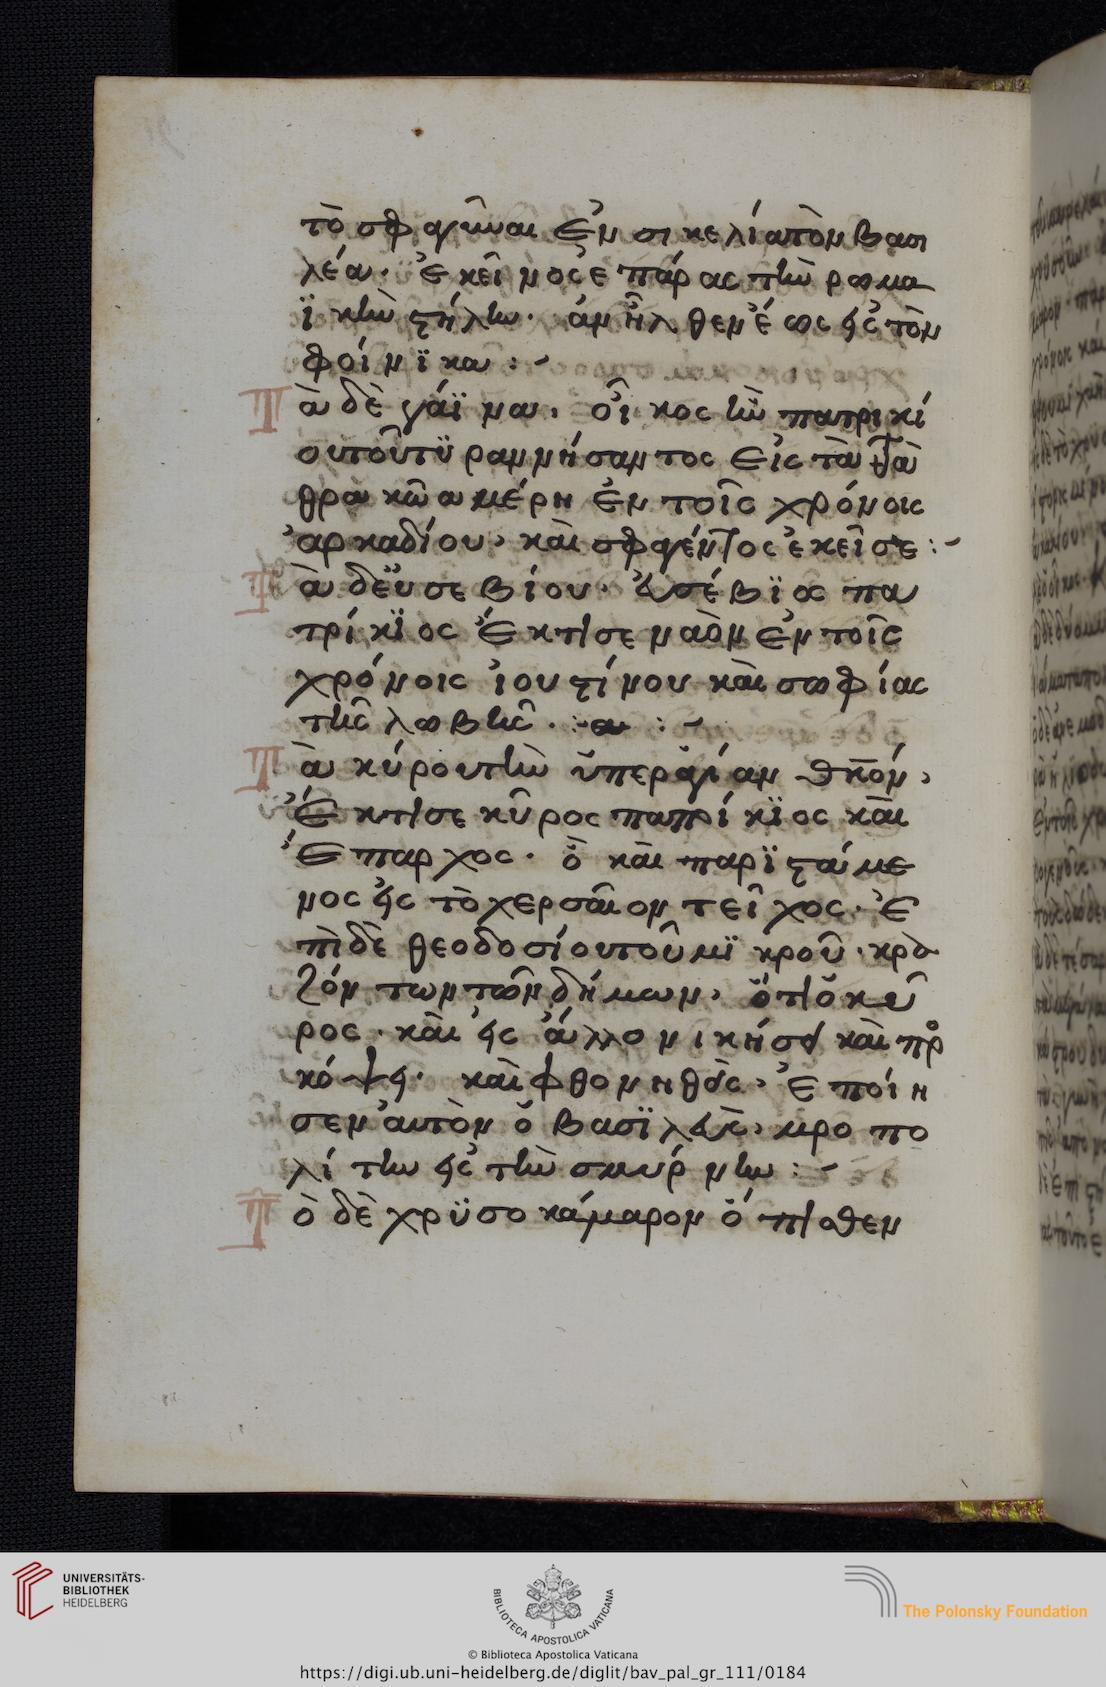 τὸ σφαγῆναι ἐν σικελία τὸν βασι
λέα· ἐκεῖνος ἐπάρας τὴν ρωμα
ϊκὴν στήλην· ἀνῆλθεν ἕως εἰς τὸν
φοίνϊκα :-
Τὰ δὲ γάϊνα, οἶκος ἦν πατρικί
ου τοῦ τϋραννήσαντος εἰς τὰ
θρακῶα μέρη ἐν τοῖς χρόνοις
ἀρκαδίου, καὶ σφαγέντος ἐκεῖσε :-
Τὰ δ' εὐσεβίου· εὐσέβϊος πα
τρίκϊος ἔκτησε ναὸν ἐν τοῖς
χρόνοις ἰουστίνου καὶ σωφίας
τῆς λωβῆς. :-
Τὰ κύρου τὴν ὑπεραγίαν θκον,
ἔκτησε κῦρος πατρίκϊος καὶ
ἔπαρχος· ὁ καὶ παρϊστάμε
νος εἰς τὸ χερσαῖον τεῖχος· ἐ
πὶ δὲ θεοδοσίου τοῦ μϊκροῦ· κρα
ζόντων τῶν δήμων, ὅτι ὁ κῦ
ρος· καὶ εἰς ἄλλο νικήσει καὶ προ
κόψει· καὶ φθονηθεὶς, ἐποίη
σεν αὐτὸν ὁ βασϊλεὺς, μρο πο
λίτην εἰς τὴν σμύρνην :-
Τὸ δὲ χρϋσοκάμαρον ὅπιοθεν
UNIVERSITÄTS-
BIBLIOTHEK
HEIDELBERG
BIBLIOTECA APOSTOLICA VATICANA
The Polonsky Foundation
© Biblioteca Apostolica Vaticana
https://digi.ub.uni-heidelberg.de/diglit/bav_pal_gr_111/0184